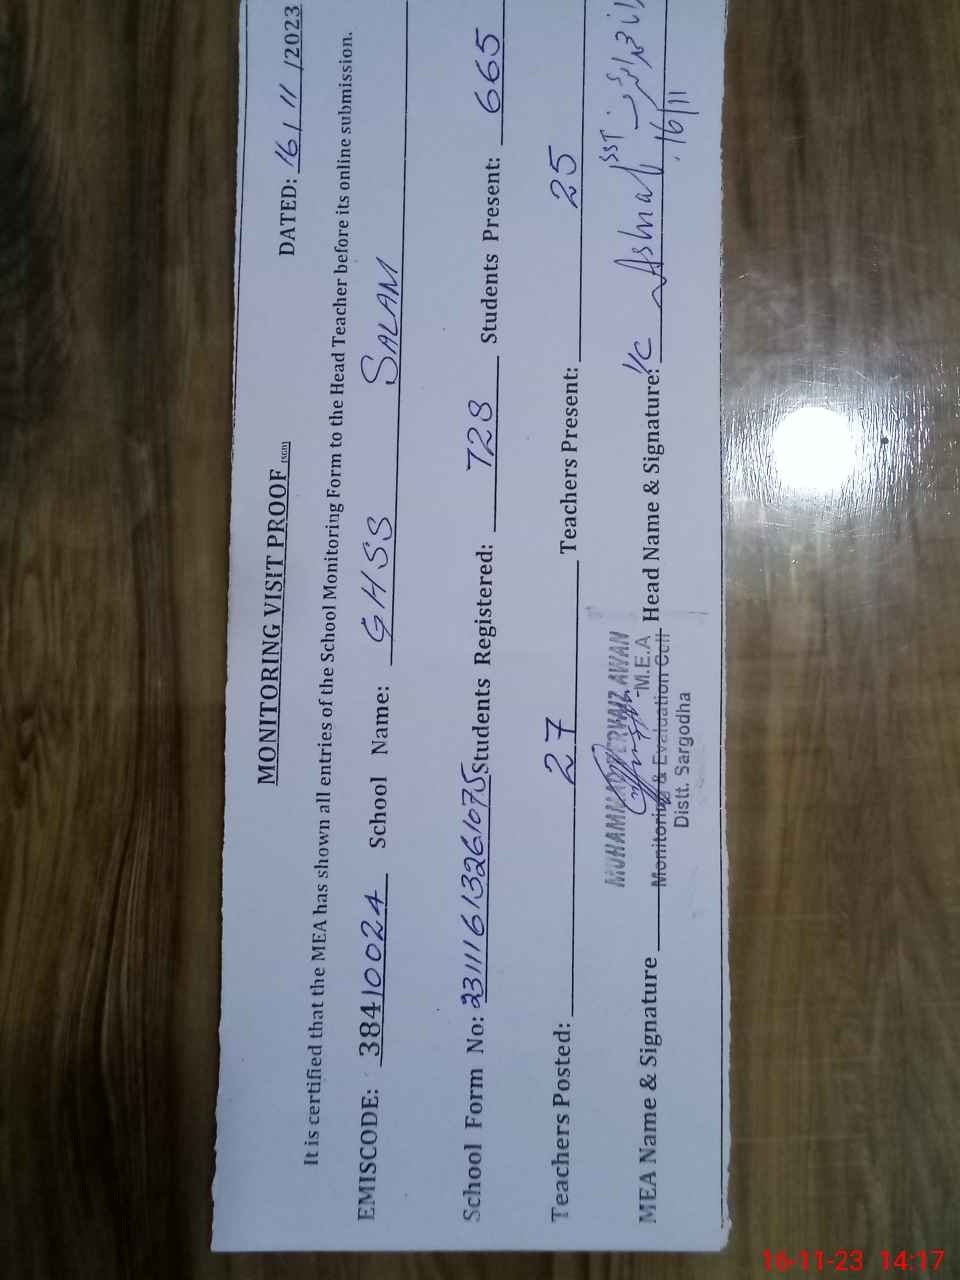 MONITORING VISIT PROOF (SGD)
DATED: 16/11/2023
It is certified that the MEA has shown all entries of the School Monitoring Form to the Head Teacher before its online submission.
EMISCODE: 38410024 School Name: GHSS SALAM
School Form No: 23111613261075 Students Registered: 728 Students Present: 665
Teachers Posted: 27 Teachers Present: 25
MUHAMMAD PERVAIZ AWAN
M.E.A
MEA Name & Signature Monitoring & Evaluation Cell Head Name & Signature: I/C Ashraf SST
Distt. Sargodha
16/11
16-11-23 14:17